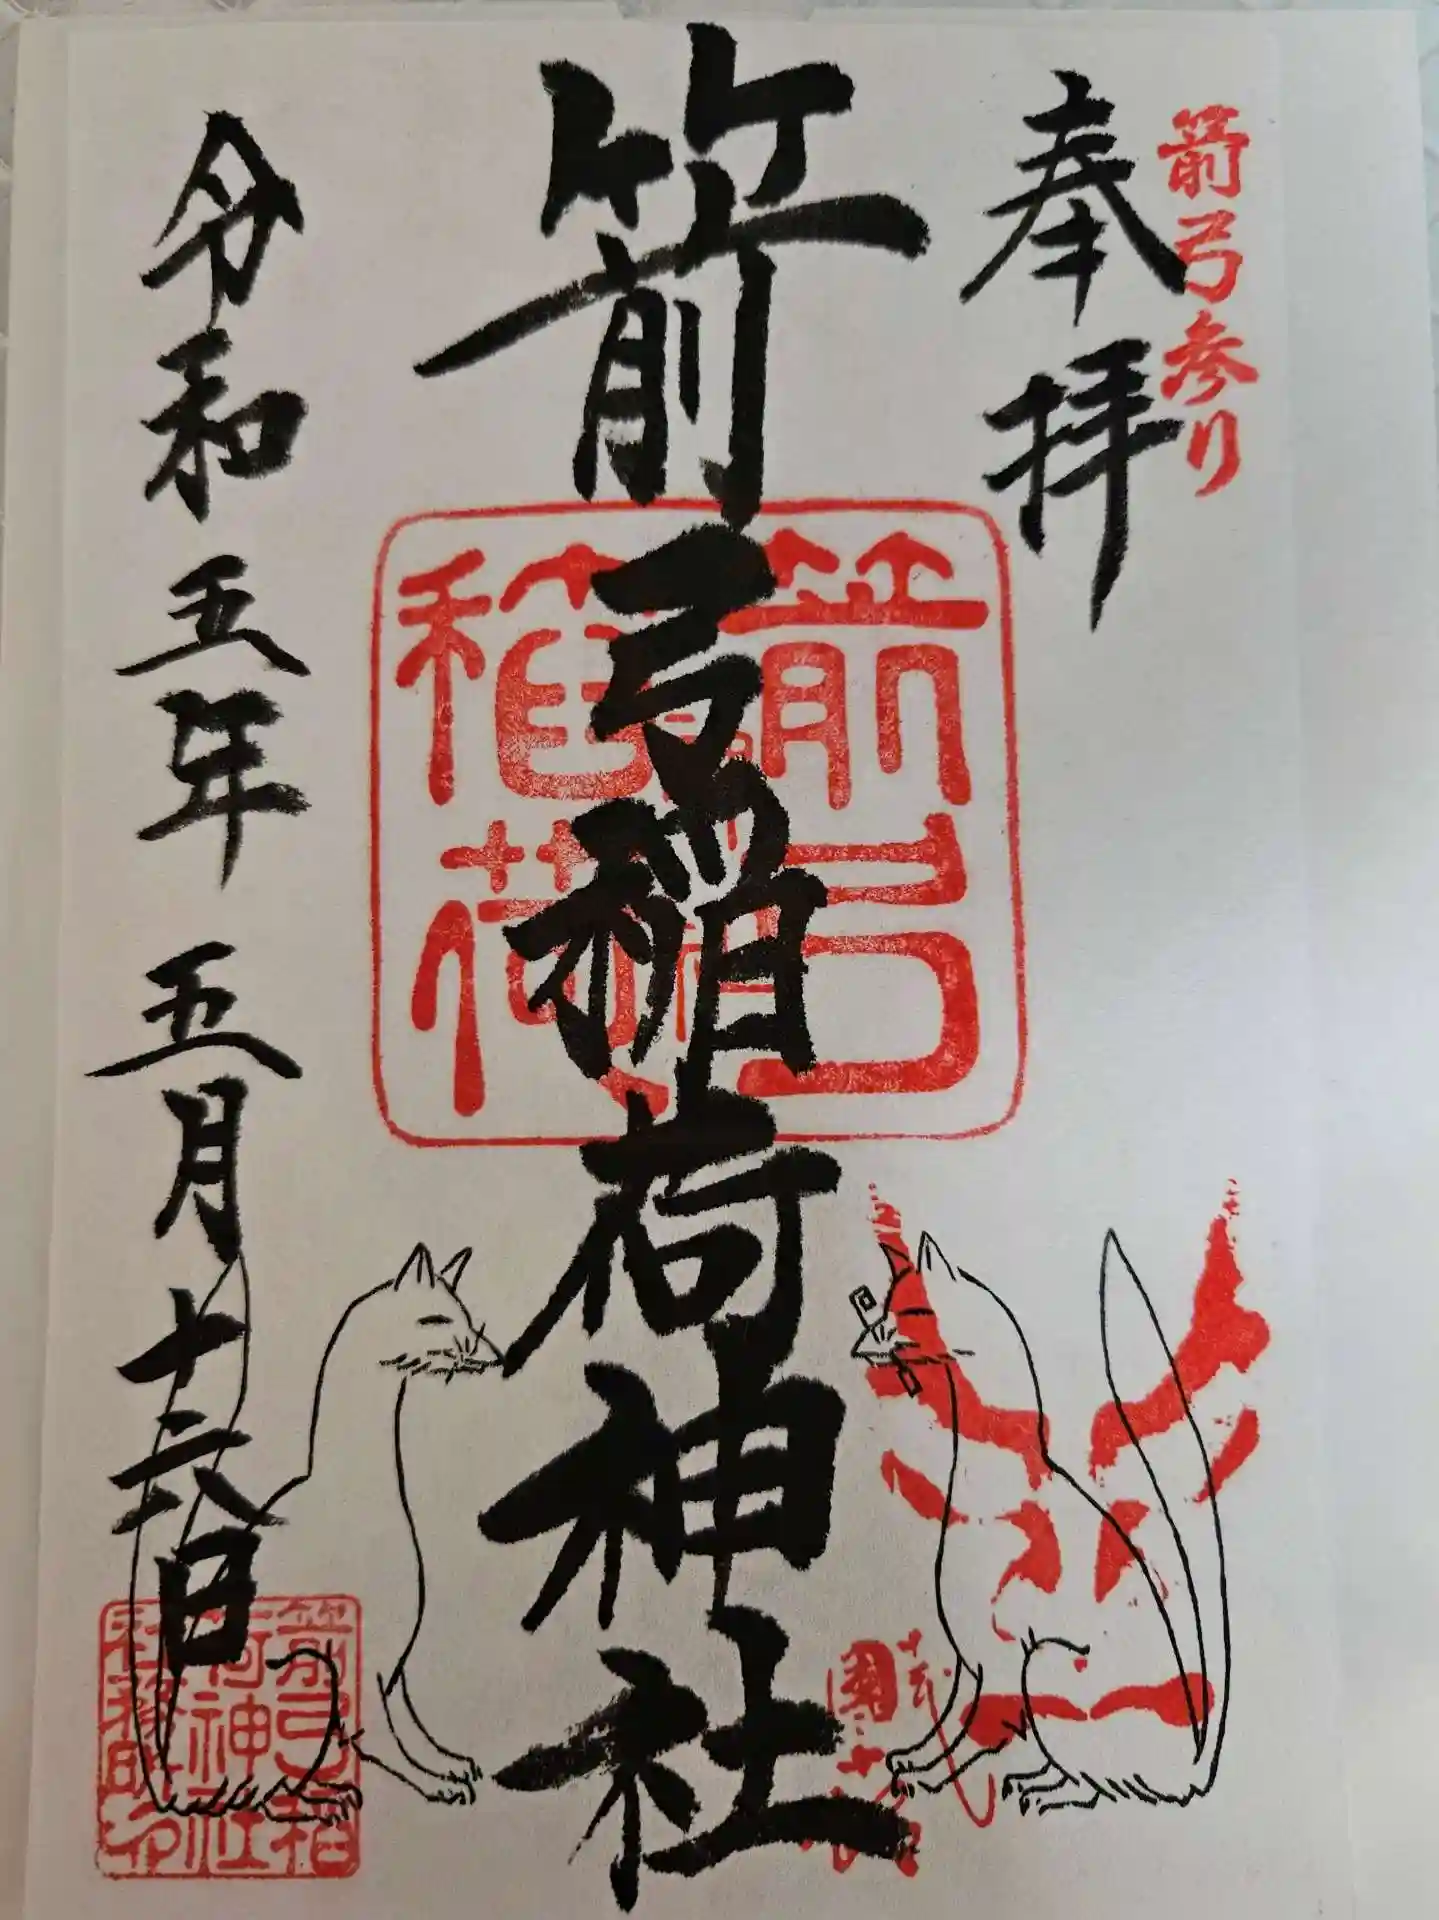 箭弓参り
奉拝
箭弓稲荷神社
箭弓
稲荷
令和五年 五月十六日
箭弓稲
荷神社
社務所印